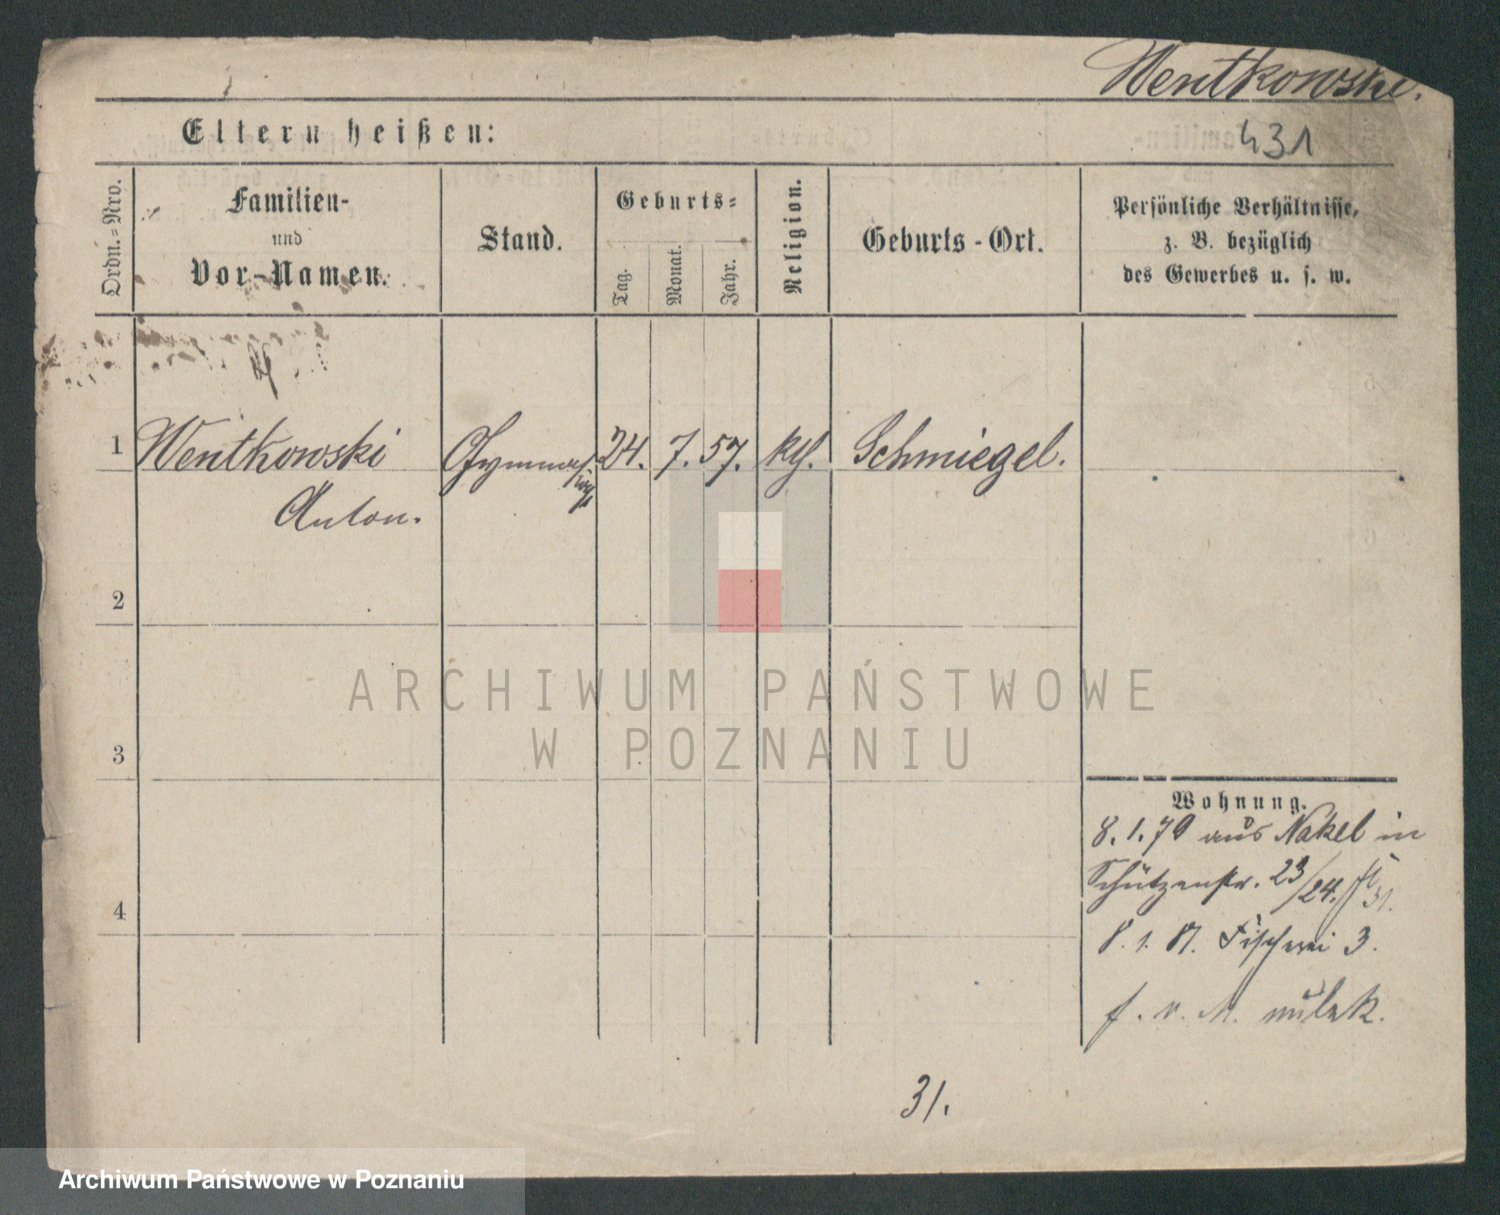 Wentkowski.
431
Eltern heißen:
Ordn.=Nro.
Familien-
und
Vor-Namen.
Stand.
Geburts=
Tag.
Monat.
Jahr.
Religion.
Geburts-Ort.
Persönliche Verhältnisse,
z. B. bezüglich
des Gewerbes u. s. w.
1 Wentkowski 24. 7. 57. kth. Schmiegel.
Anton.
2
3
4
Wohnung.
8.1.79 aus Nakel in
Schützenstr. 23/24.
31.
8. 1. 81. Fischerei 3.
31.
ARCHIWUM PAŃSTWOWE
W POZNANIU
Archiwum Państwowe w Poznaniu